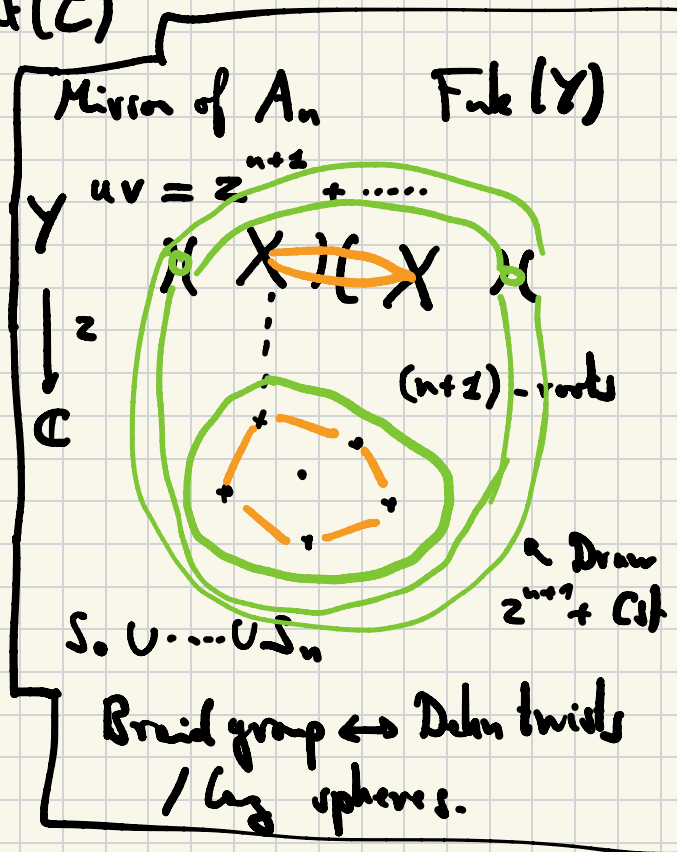 f(C)
Mirror of Aₙ Fuk(Y)
Y uv = z^{n+1} + ......
z
ℂ
(n+1)-roots
Draw
z^{n+1} + Cst
S₀ ∪ ..... ∪ Sₙ
Braid group ↔ Dehn twists
/ Lag spheres.